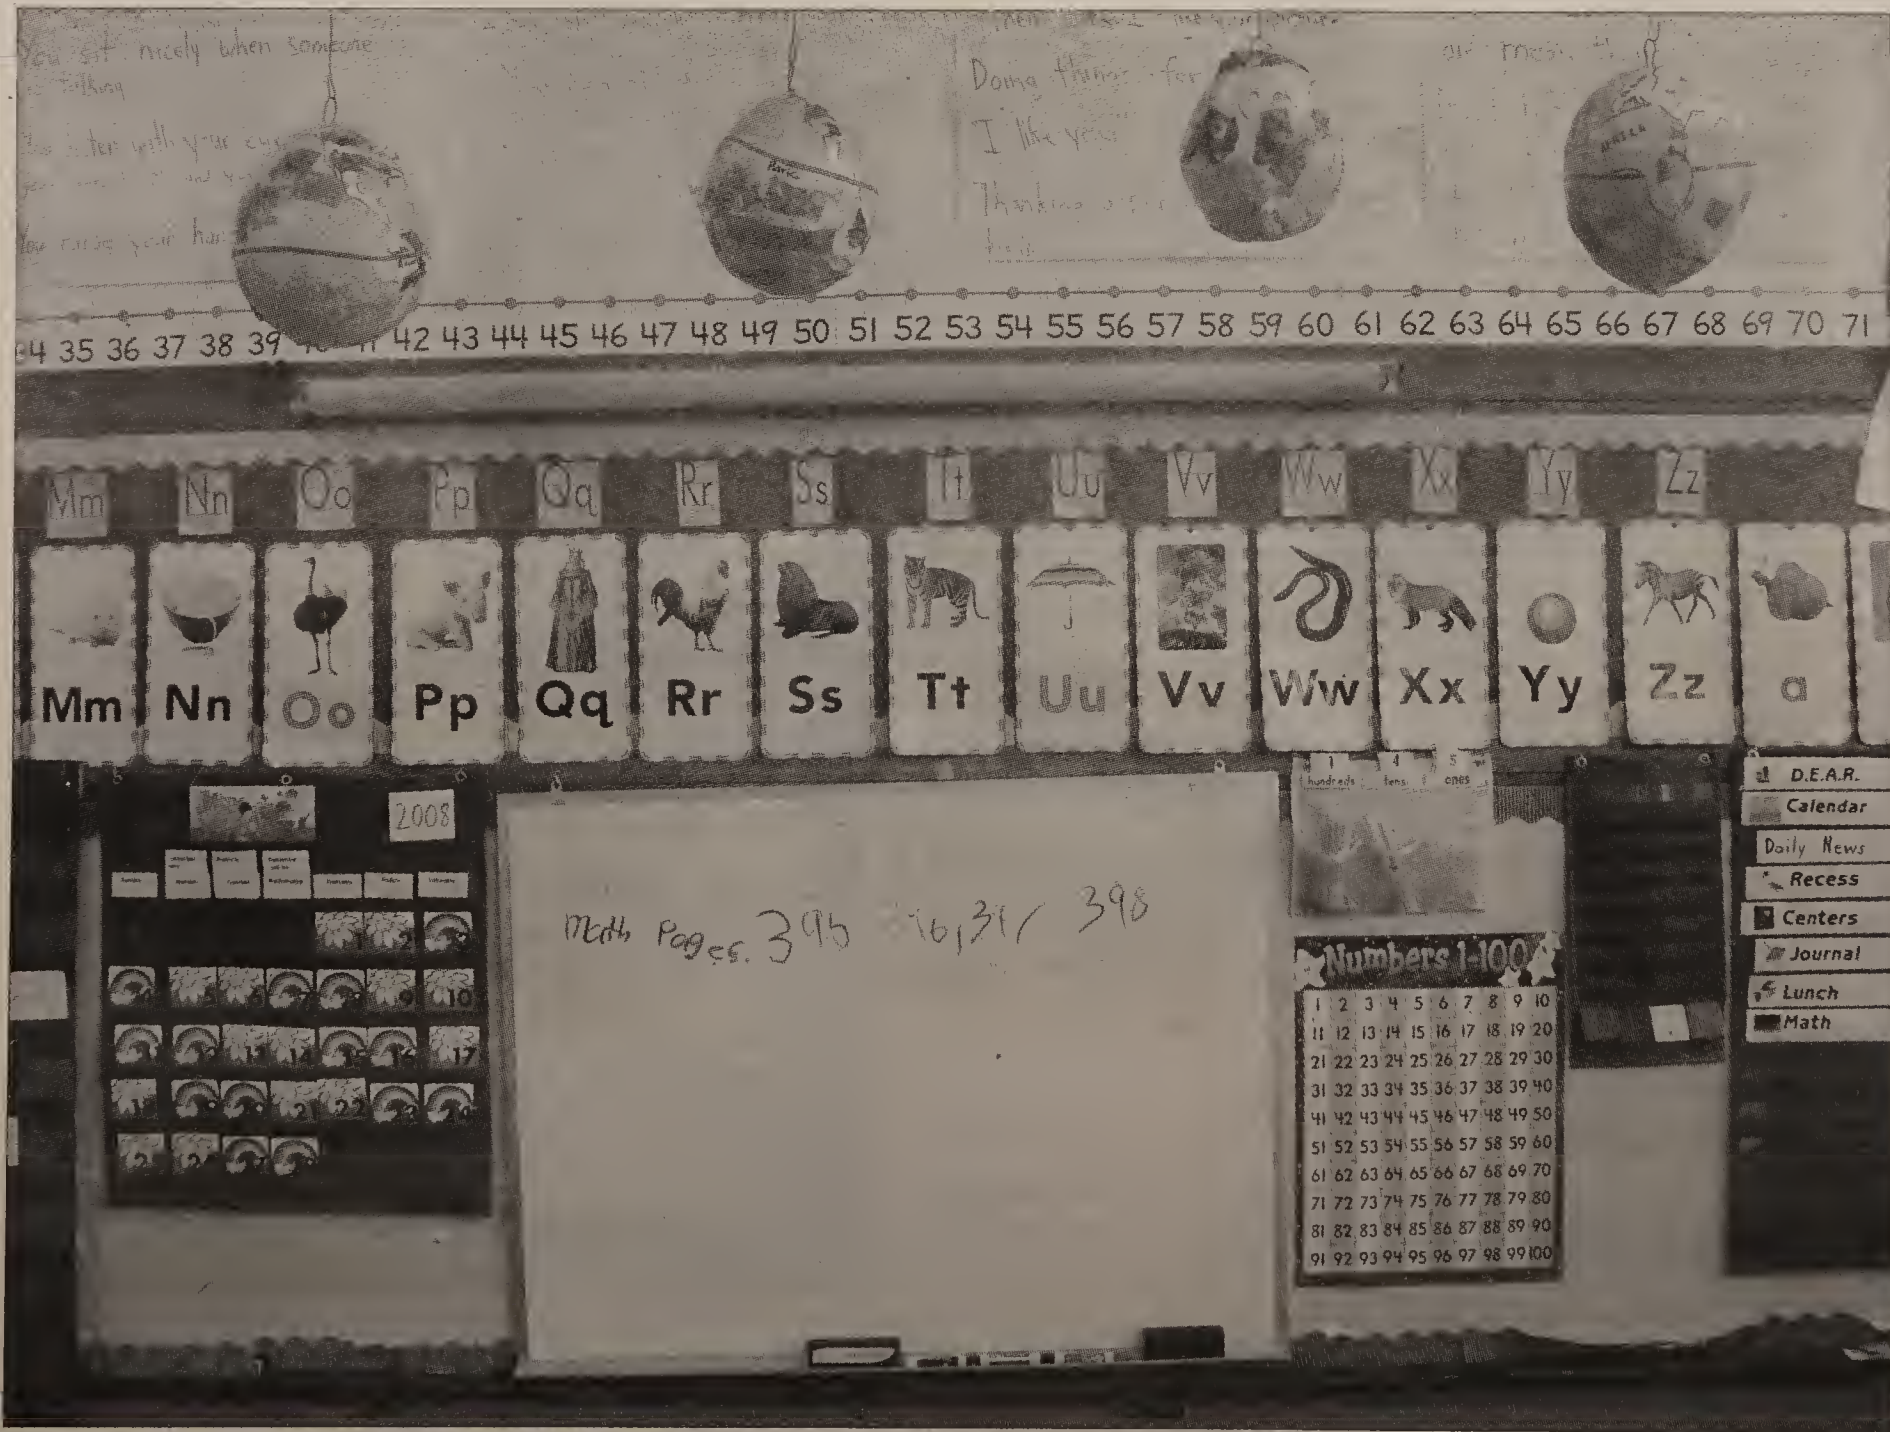 You sit nicely when someone
talking
with your
You raise your
Doing things for
I like your
Thanking
Paris
AFRICA
35 36 37 38 39 42 43 44 45 46 47 48 49 50 51 52 53 54 55 56 57 58 59 60 61 62 63 64 65 66 67 68 69 70 71
Mm Nn Oo Pp Qq Rr Ss Tt Uu Vv Ww Xx Yy Zz
Mm Nn Oo Pp Qq Rr Ss Tt Uu Vv Ww Xx Yy Zz a
2008
1 2 3
4 5 6 7 8 9 10
11 12 13 14 15 16 17
18 19 20 21 22 23 24
25 26 27 28
Math Pages. 395 398
1 4 5
hundreds tens ones
Numbers 1-100
1 2 3 4 5 6 7 8 9 10
11 12 13 14 15 16 17 18 19 20
21 22 23 24 25 26 27 28 29 30
31 32 33 34 35 36 37 38 39 40
41 42 43 44 45 46 47 48 49 50
51 52 53 54 55 56 57 58 59 60
61 62 63 64 65 66 67 68 69 70
71 72 73 74 75 76 77 78 79 80
81 82 83 84 85 86 87 88 89 90
91 92 93 94 95 96 97 98 99 100
D.E.A.R.
Calendar
Daily News
Recess
Centers
Journal
Lunch
Math